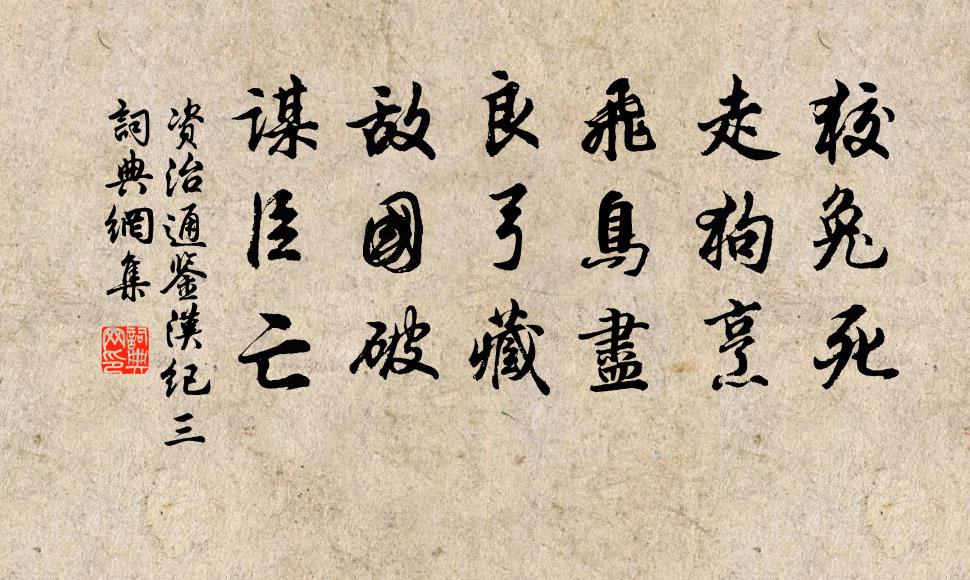 狡兔死
走狗烹
飛鳥盡
良弓藏
敵國破
謀臣亡
资治通鉴漢纪三
詞典網集
詞典
网印